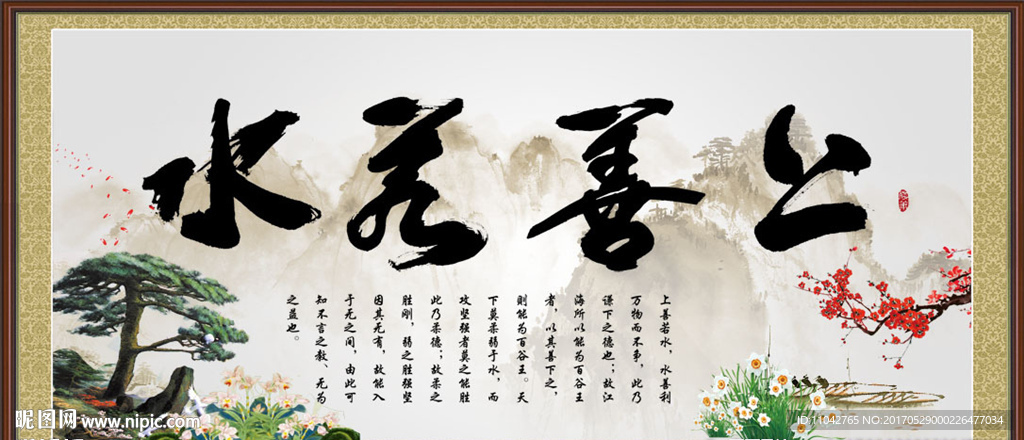 上善若水
上善若水，水善利
万物而不争，此乃
谦下之德也；故江
海所以能为百谷王
者，以其善下之，
则能为百谷王。天
下莫柔弱于水，而
攻坚强者莫之能胜
此乃柔德；故柔之
胜刚，弱之胜强坚
因其无有，故能入
于无之间，由此可
知不言之教、无为
之益也。
昵图网 www.nipic.com
ID:11042765 NO:20170529000226477034